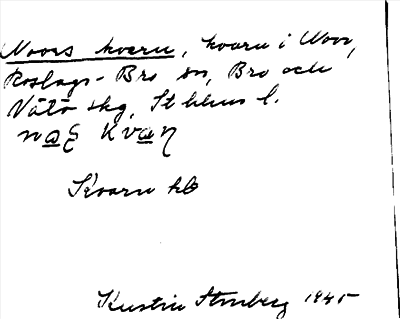 Noors kvarn, kvarn i Noor,
Roslags-Bro sn, Bro och
Vätö skg, St hlms l.
Kvarn hb
Kerstin Stenberg 1945